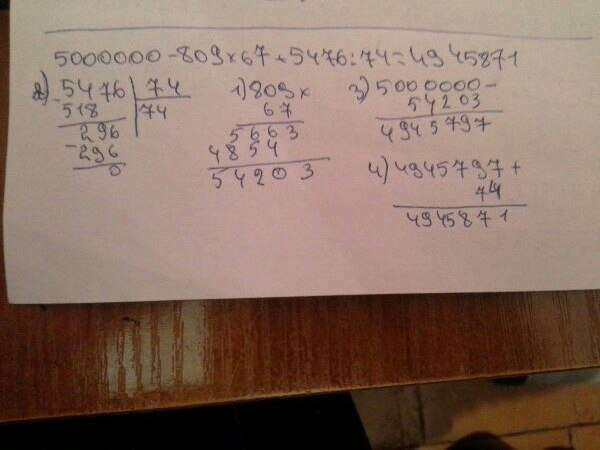 5000000-809×67+5476:74=4945871
2) 5476 74
-518 74
296
-296
0
1) 809×
67
5663
4854
54203
3) 5000000-
54203
4945797
4) 4945797+
74
4945871